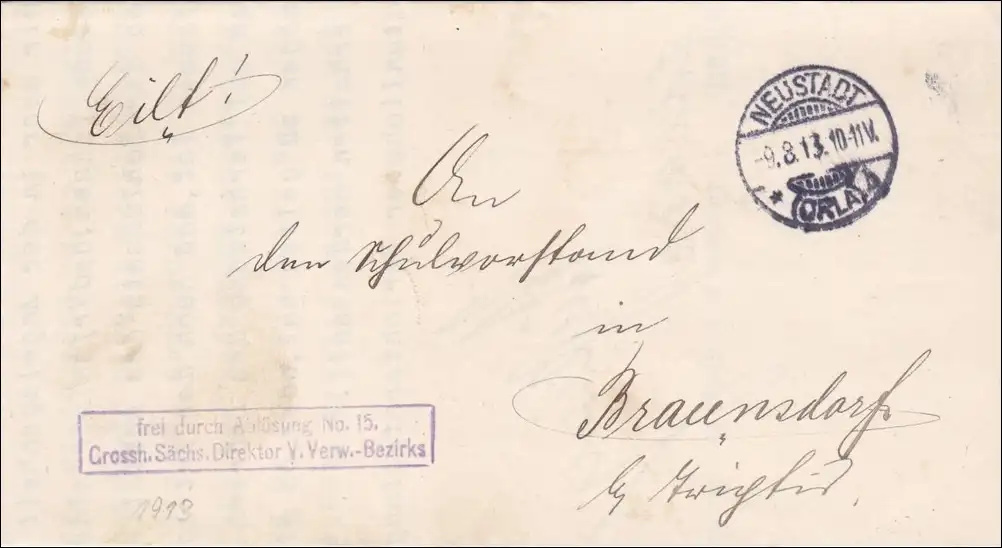 Eilt!
NEUSTADT
-9.8.13.10-11V.
* (ORLA) d
An
den Schulvorstand
in
Braunsdorf
b/ Triptis.
frei durch Ablösung No. 15.
Grossh. Sächs. Direktor V. Verw.-Bezirks
1913